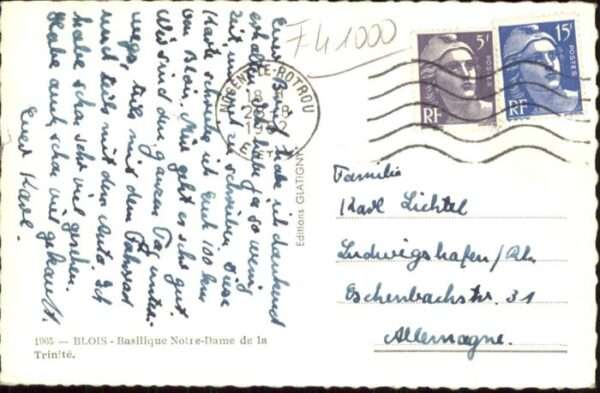 F41000
5F
15F
POSTES
RF
RF
NOGENT-LE-ROTROU
18
Euren Brief habe ich dankend
erhalten. Ich habe ja so wenig
Zeit, um zu schreiben. Diese
Karte schreibe ich Euch 100 km
von Blois. Mir geht es sehr gut
Wir sind den ganzen Tag unter-
wegs, teils mit dem Fahrrad
und teils mit dem Auto. Ich
habe schon sehr viel gesehen.
Habe auch schon viel gekauft.
Euer Karl.
Editions GLATIGNY
Familie
Karl Lichtel
Ludwigshafen/Rh.
Eschenbachstr. 31
Allemagne.
1965 — BLOIS - Basilique Notre-Dame de la
Trinité.